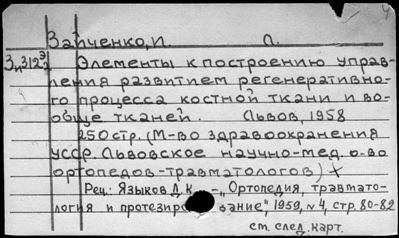 Зайченко, И. П.
З п312² Элементы к построению управ-
ления развитием регенеративно-
го процесса костной ткани и во-
обще тканей. Львов, 1958
250 стр. (М-во здравоохранения
УССР. Львовское научно-мед. о-во
ортопедов-травматологов) +
Рец.: Языков Д.К. - „Ортопедия, травмато-
логия и протезиро вание", 1959, №4, стр. 80-82
см. след. карт.